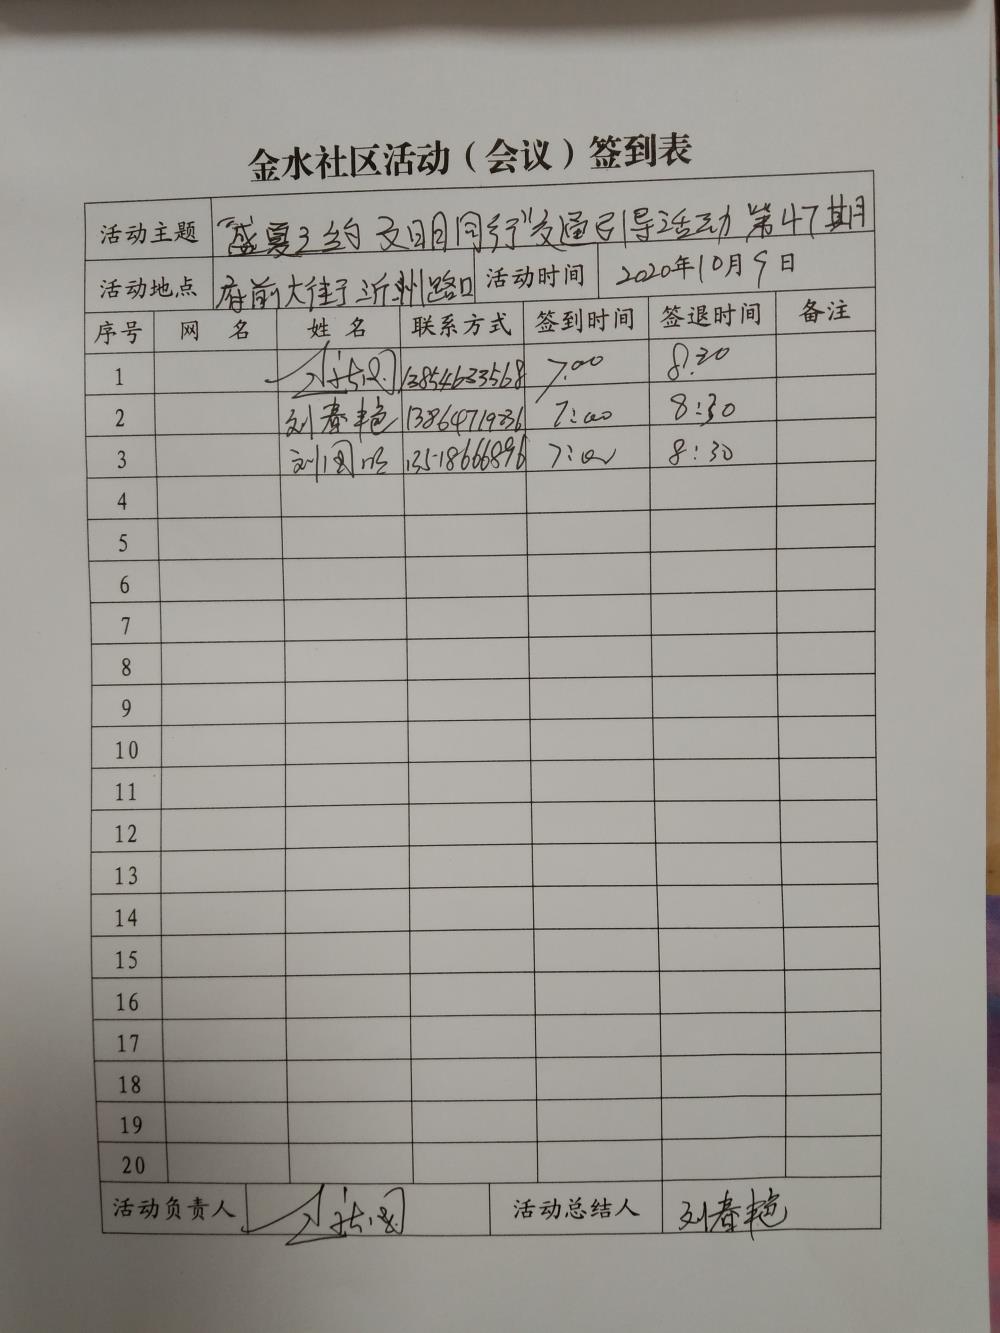 金水社区活动（会议）签到表
活动主题 "盛夏之约 文明同行"交通引导活动 第47期
活动地点 府前大街沂州路口 活动时间 2020年10月9日
序号 网名 姓名 联系方式 签到时间 签退时间 备注
1 13854633568 7:00 8:30
2 刘春艳 13864719236 7:00 8:30
3 刘国 13518666896 7:00 8:30
4
5
6
7
8
9
10
11
12
13
14
15
16
17
18
19
20
活动负责人 活动总结人 刘春艳